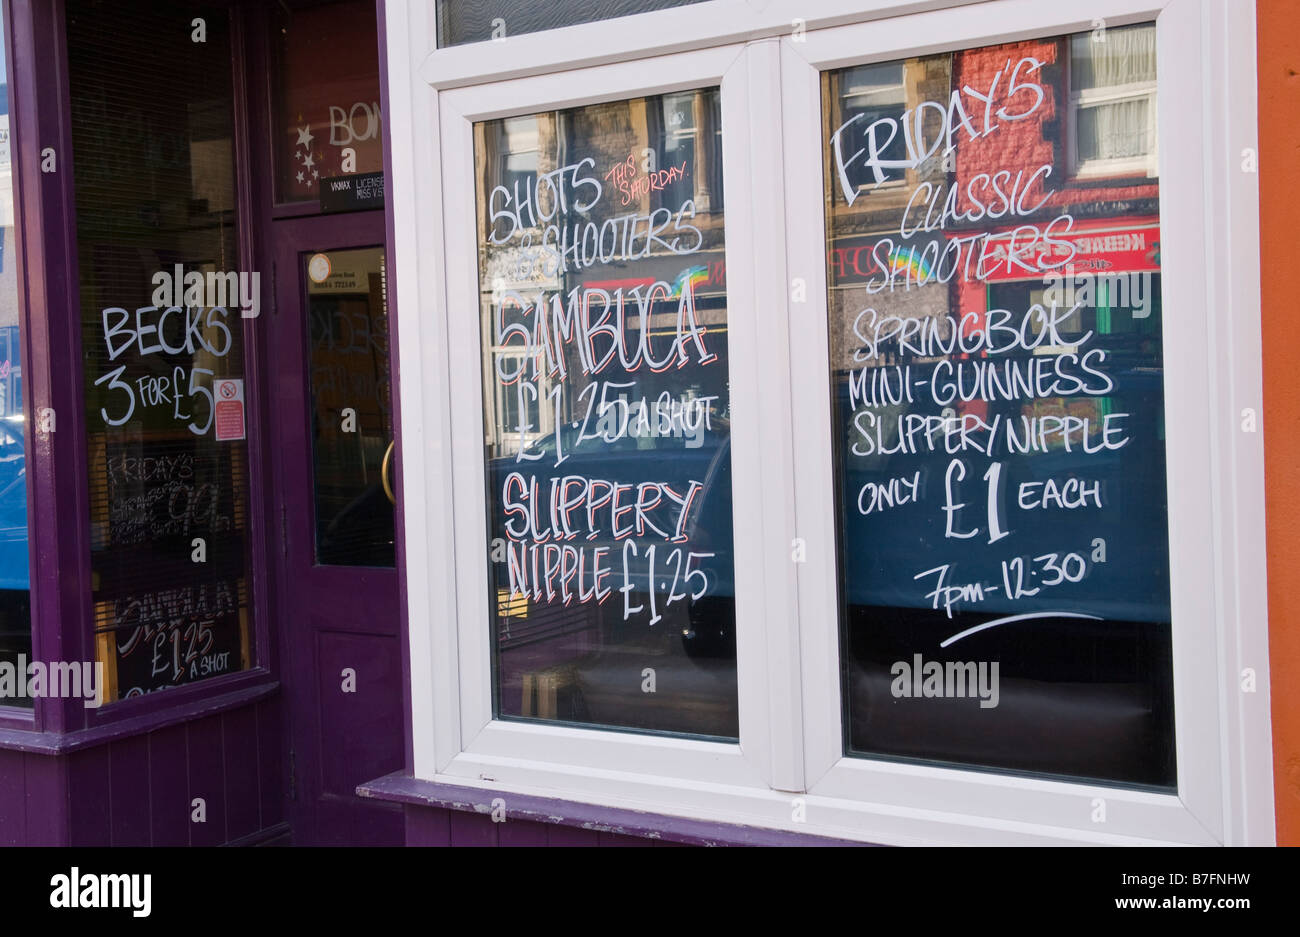 BECKS
3 FOR £5
FRIDAY'S
99P
SAMBUCA
£1.25
A SHOT
BON
VKMAX LICENSE
MISS V.S
SHOTS THIS
SATURDAY.
& SHOOTERS
SAMBUCA
£1.25 A SHOT
SLIPPERY
NIPPLE £1.25
FRIDAY'S
CLASSIC
SHOOTERS
SPRINGBOK
MINI-GUINNESS
SLIPPERY NIPPLE
ONLY £1 EACH
7pm-12.30
KEBABS & PIZZA
alamy
alamy stock photo
B7FNHW
www.alamy.com